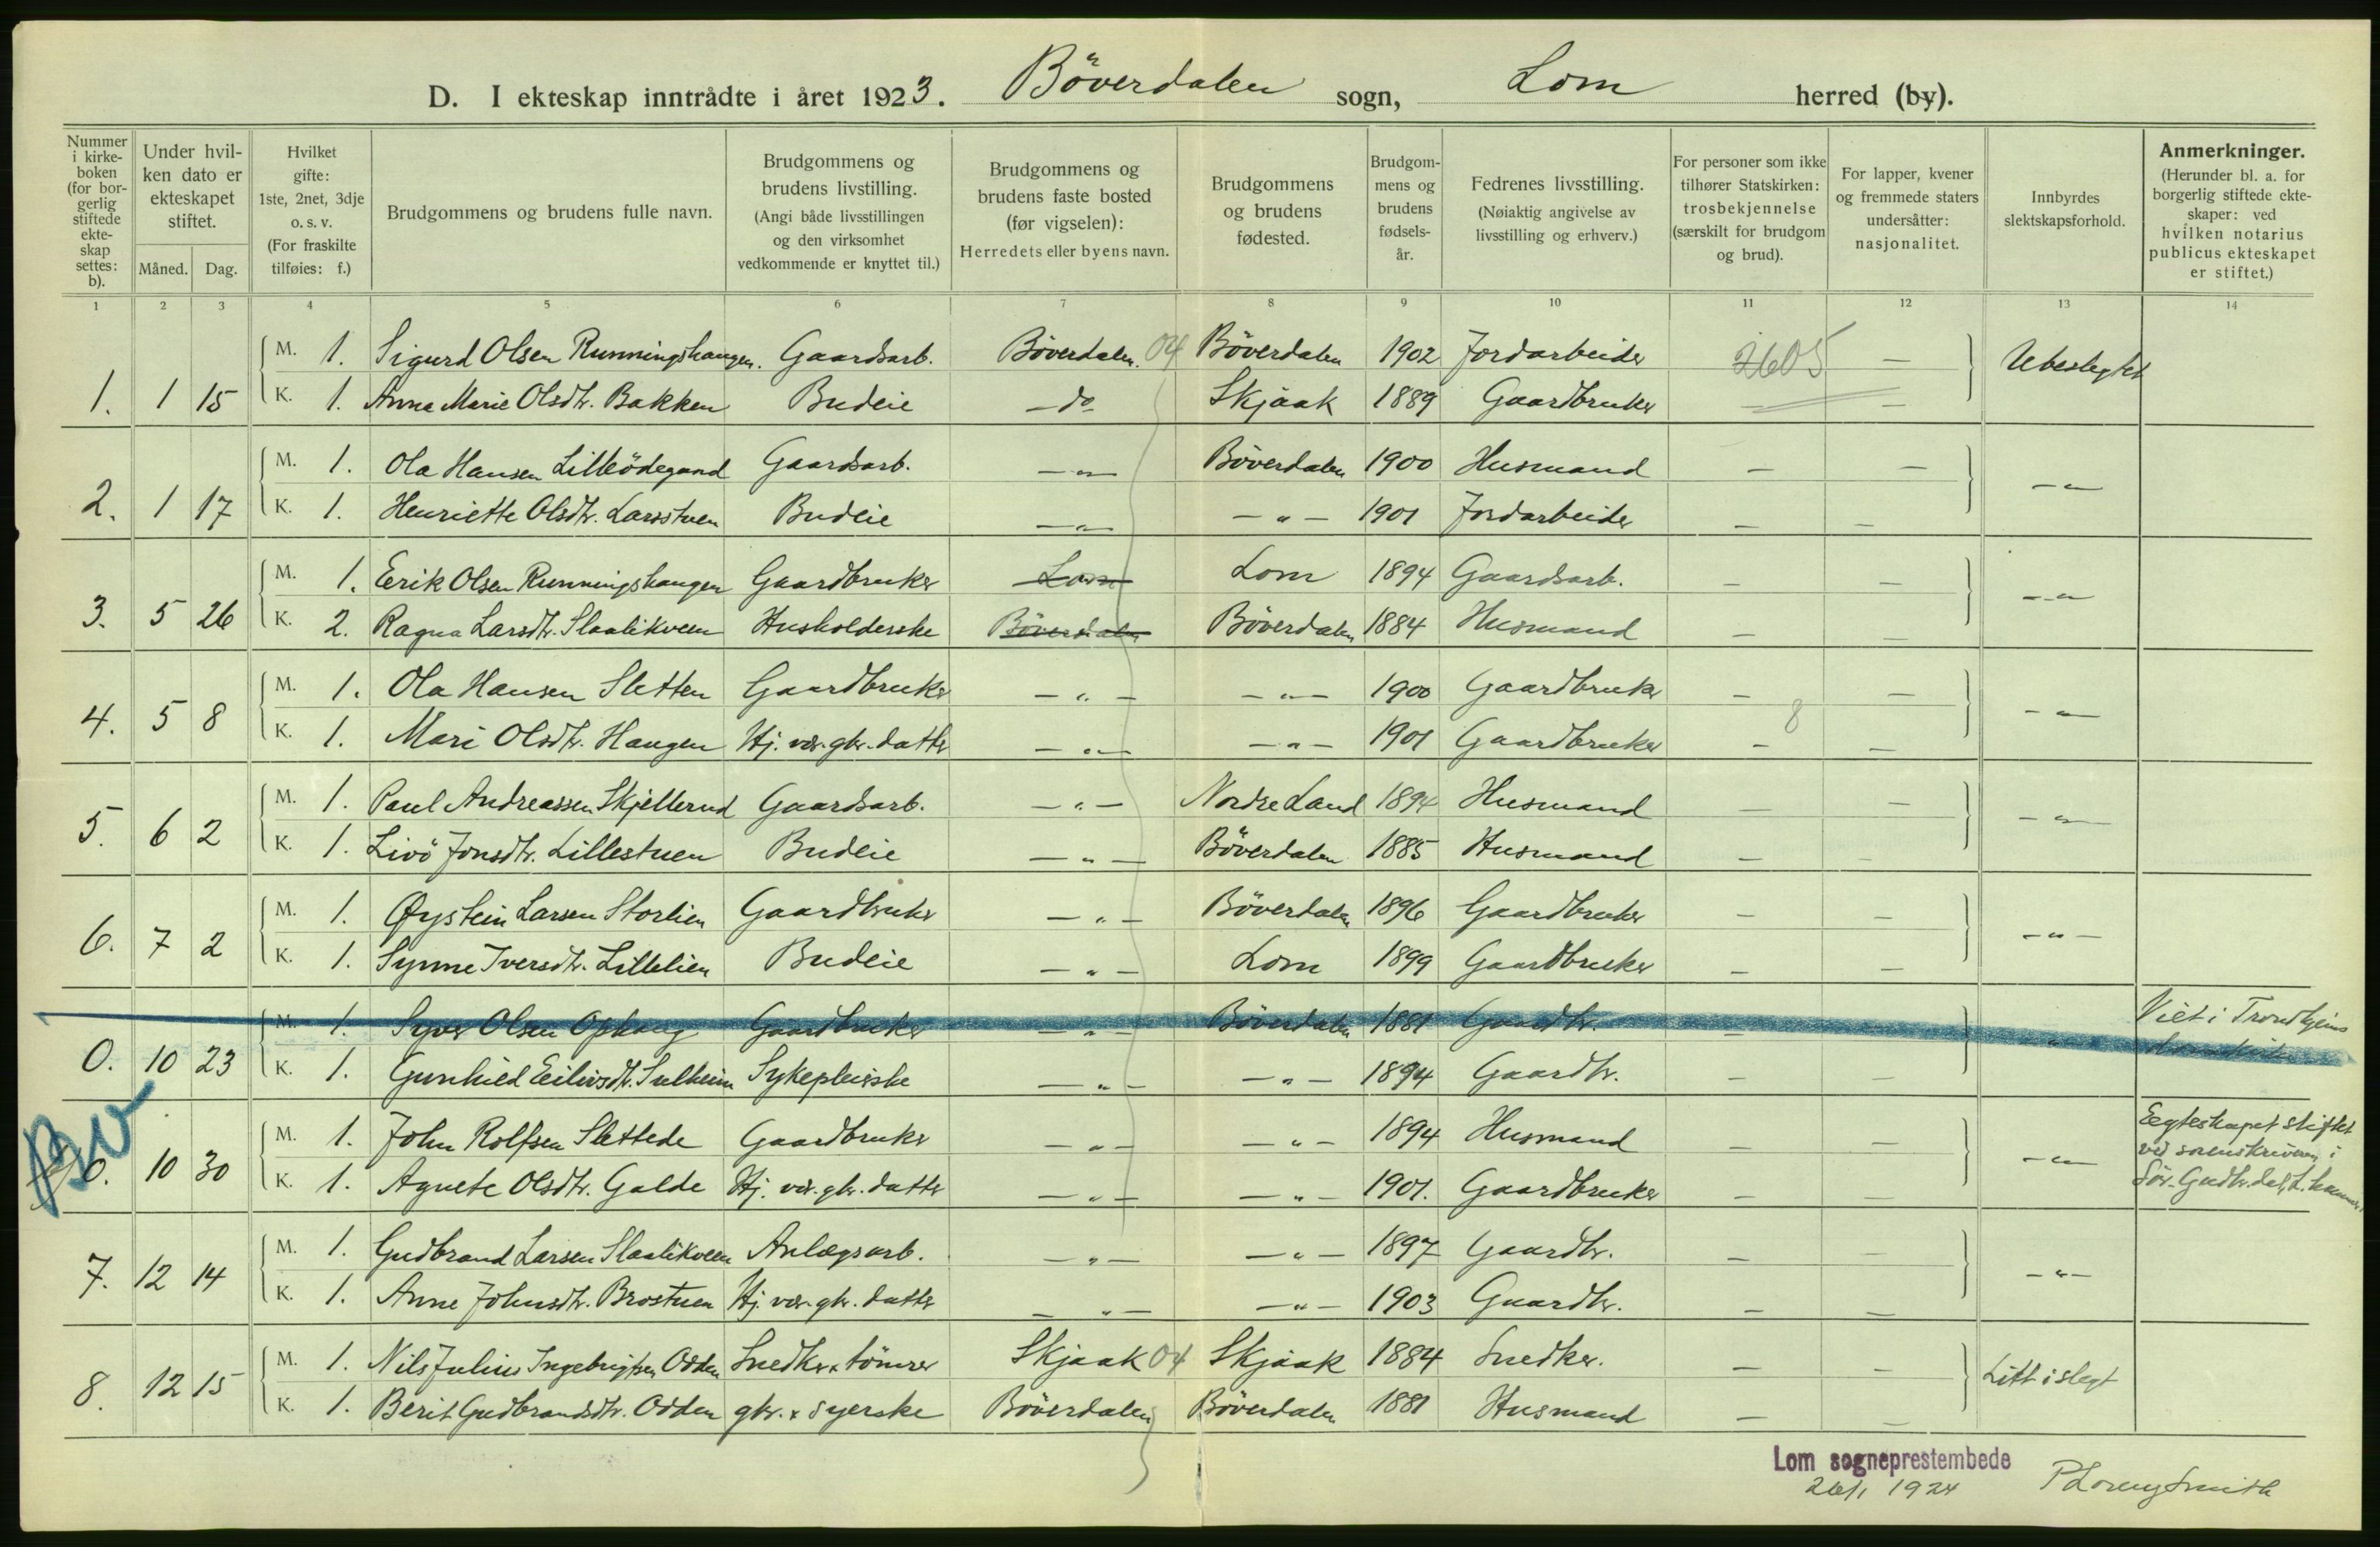 D. I ekteskap inntrådte i året 1923. Böverdalen sogn, Lom herred (by).
Nummer i kirkeboken (for borgerlig stiftede ekteskap settes: b).
Under hvilken dato er ekteskapet stiftet.
Måned. Dag.
Hvilket gifte: 1ste, 2net, 3dje o. s. v. (For fraskilte tilføies: f.)
Brudgommens og brudens fulle navn.
Brudgommens og brudens livstilling. (Angi både livsstillingen og den virksomhet vedkommende er knyttet til.)
Brudgommens og brudens faste bosted (før vigselen): Herredets eller byens navn.
Brudgommens og brudens fødested.
Brudgommens og brudens fødselsår.
Fedrenes livsstilling. (Nøiaktig angivelse av livsstilling og erhverv.)
For personer som ikke tilhører Statskirken: trosbekjennelse (særskilt for brudgom og brud).
For lapper, kvener og fremmede staters undersåtter: nasjonalitet.
Innbyrdes slektskapsforhold.
Anmerkninger. (Herunder bl. a. for borgerlig stiftede ekteskaper: ved hvilken notarius publicus ekteskapet er stiftet.)
1 2 3 4 5 6 7 8 9 10 11 12 13 14
M. 1. Sigurd Olsen Runningshaugen. Gaardsarb. Böverdalen. 04 Böverdalen 1902 Jordarbeider 2605 — Ubeslegtet
1. 1 15 K. 1. Anna Marie Olsdtr. Bakken Budeie — do Skjaak 1889 Gaardbruker — —
M. 1. Ola Hansen Lilleödegaard Gaardsarb. — " — Böverdalen 1900 Husmand — — — " —
2. 1 17 K. 1. Henriette Olsdtr. Larsstuen Budeie — " — — " — 1901 Jordarbeider — —
M. 1. Eerik Olsen Runningshaugen Gaardbruker Lom Lom 1894 Gaardsarb. — — — " —
3. 5 26 K. 2. Ragna Larsdtr. Slaalikveen Husholderske Böverdalen Böverdalen 1884 Husmand — —
M. 1. Ola Hansen Sletten Gaardbruker — " — — " — 1900 Gaardbruker — — — " —
4. 5 8 K. 1. Mari Olsdtr. Haugen Hj. vær. gbr. datter — " — — " — 1901 Gaardbruker — 8 —
M. 1. Paul Andreassen Skjellerud Gaardsarb. — " — Nordre Land 1894 Husmand — — — " —
5. 6 2 K. 1. Livö Jonsdtr. Lillestuen Budeie — " — Böverdalen 1885 Husmand — —
M. 1. Øystein Larsen Storlien Gaardbruker — " — Böverdalen 1896 Gaardbruker — — — " —
6. 7 2 K. 1. Synne Iversdtr. Lillelien Budeie — " — Lom 1899 Gaardbruker — —
M. 1. Syver Olsen Ophaug Gaardbruker — " — Böverdalen 1881 Gaardbr. — " Viet i Trondhjems domkirke
0. 10 23 K. 1. Gunhild Eilivsdtr. Sulheim Sykepleierske — " — — " — 1894 Gaardbr. — —
M. 1. John Rolfsen Slettede Gaardbruker — " — — " — 1894 Husmand — — — " — Egteskapet stiftet
ved sorenskriveren i
0. 10 30 K. 1. Agnete Olsdtr. Galde Hj. vær. gbr. datter — " — — " — 1901. Gaardbruker — — Sör-Gudbr.dal, L.hammer.
M. 1. Gudbrand Larsen Slaalikveen Anlægsarb. — " — — " — 1897 Gaardbr. — — — " —
7. 12 14 K. 1. Anne Johnsdtr. Brostuen Hj. vær. gbr. datter — " — — " — 1903 Gaardbr. — —
M. 1. Nils Julius Ingebrigtsen Odden Snedker & tömrer Skjaak 04 Skjaak 1884 Snedker. — — Litt i slegt
8. 12 15 K. 1. Berit Gudbrandsdtr. Odden gbr. & syerske Böverdalen Böverdalen 1881 Husmand — —
Lom sogneprestembede
26/1 1924 P Lorenz Smith